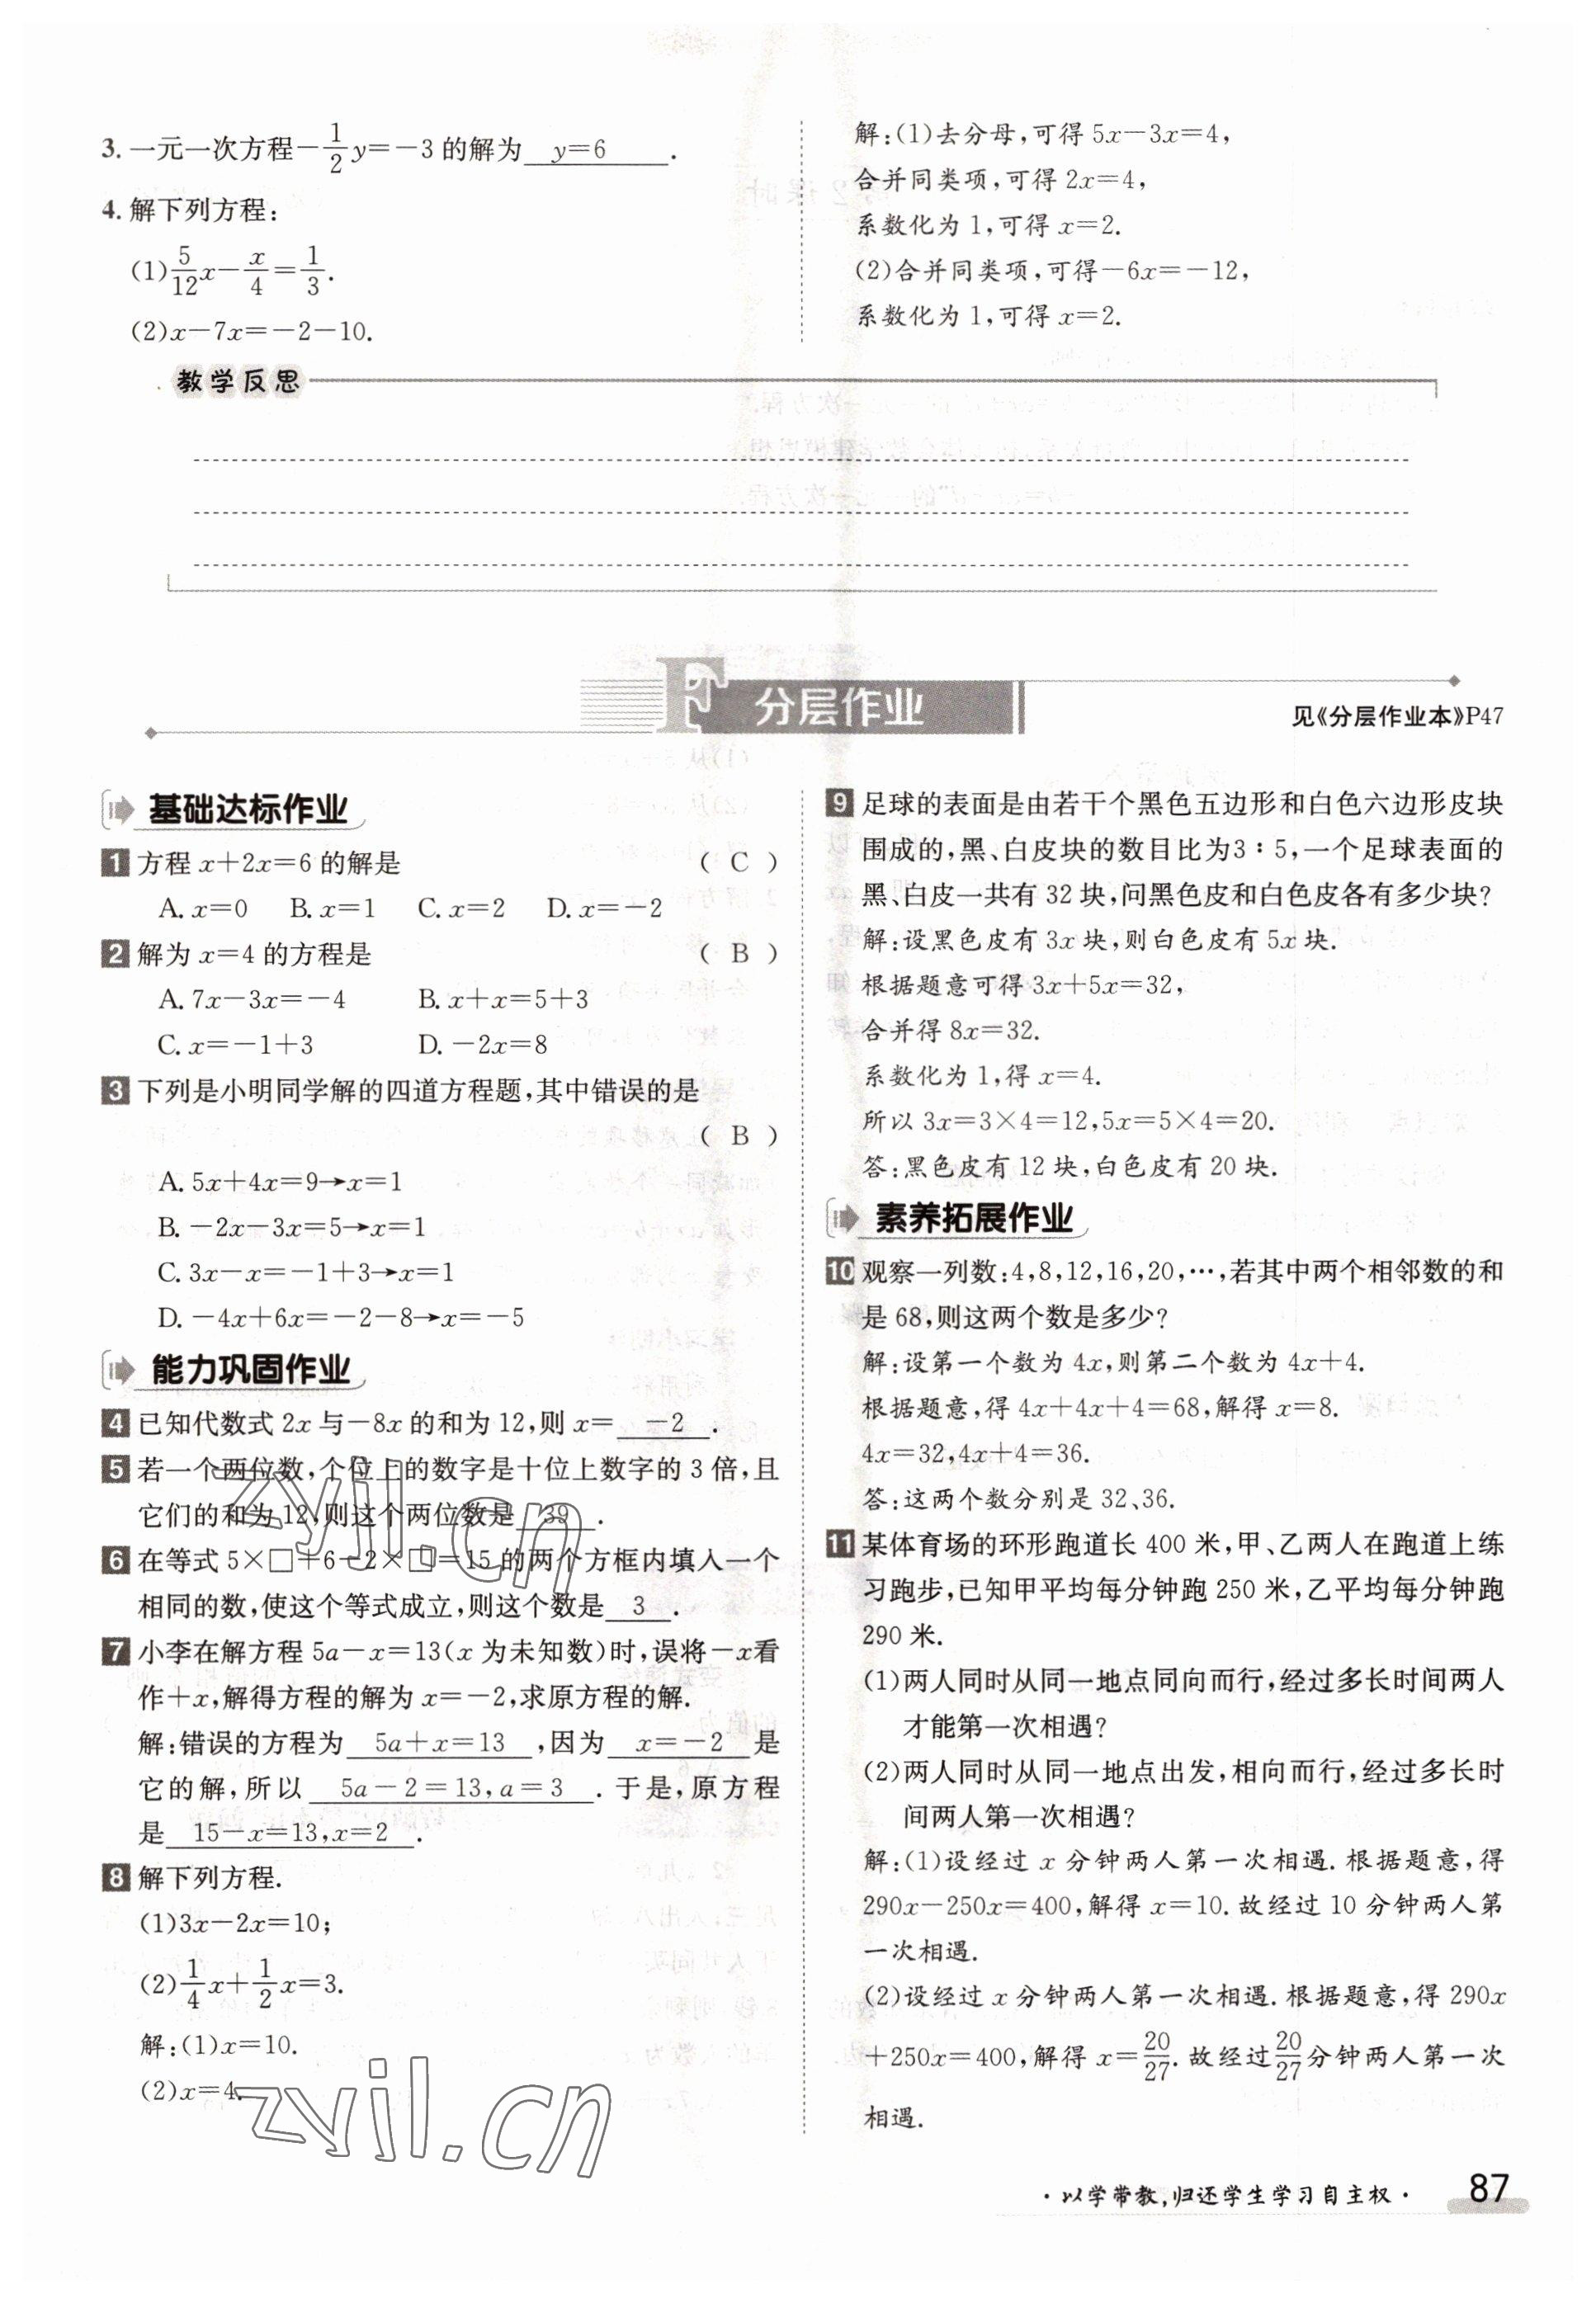 3. 一元一次方程-\frac{1}{2}y=-3 的解为 y=6 .
4. 解下列方程:
(1)\frac{5}{12}x-\frac{x}{4}=\frac{1}{3}.
(2)x-7x=-2-10.
解:(1)去分母,可得 5x-3x=4,
合并同类项,可得 2x=4,
系数化为 1,可得 x=2.
(2)合并同类项,可得-6x=-12,
系数化为 1,可得 x=2.
教学反思
F 分层作业
见《分层作业本》P47
基础达标作业
1 方程 x+2x=6 的解是 ( C )
A. x=0 B. x=1 C. x=2 D. x=-2
2 解为 x=4 的方程是 ( B )
A. 7x-3x=-4 B. x+x=5+3
C. x=-1+3 D. -2x=8
3 下列是小明同学解的四道方程题,其中错误的是
( B )
A. 5x+4x=9→x=1
B. -2x-3x=5→x=1
C. 3x-x=-1+3→x=1
D. -4x+6x=-2-8→x=-5
能力巩固作业
4 已知代数式 2x 与-8x 的和为 12,则 x= -2 .
5 若一个两位数,个位上的数字是十位上数字的 3 倍,且
它们的和为 12,则这个两位数是 39 .
6 在等式 5×□+6-2×□=15 的两个方框内填入一个
相同的数,使这个等式成立,则这个数是 3 .
7 小李在解方程 5a-x=13(x 为未知数)时,误将-x看
作+x,解得方程的解为 x=-2,求原方程的解.
解:错误的方程为 5a+x=13 ,因为 x=-2 是
它的解,所以 5a-2=13,a=3 .于是,原方程
是 15-x=13,x=2 .
8 解下列方程.
(1)3x-2x=10;
(2)\frac{1}{4}x+\frac{1}{2}x=3.
解:(1)x=10.
(2)x=4.
9 足球的表面是由若干个黑色五边形和白色六边形皮块
围成的,黑、白皮块的数目比为3∶5,一个足球表面的
黑、白皮一共有 32 块,问黑色皮和白色皮各有多少块?
解:设黑色皮有 3x 块,则白色皮有 5x 块.
根据题意可得 3x+5x=32,
合并得 8x=32.
系数化为 1,得 x=4.
所以 3x=3×4=12,5x=5×4=20.
答:黑色皮有 12 块,白色皮有 20 块.
素养拓展作业
10 观察一列数:4,8,12,16,20,…,若其中两个相邻数的和
是 68,则这两个数是多少?
解:设第一个数为 4x,则第二个数为 4x+4.
根据题意,得 4x+4x+4=68,解得 x=8.
4x=32,4x+4=36.
答:这两个数分别是 32、36.
11 某体育场的环形跑道长 400 米,甲、乙两人在跑道上练
习跑步,已知甲平均每分钟跑 250 米,乙平均每分钟跑
290 米.
(1)两人同时从同一地点同向而行,经过多长时间两人
才能第一次相遇?
(2)两人同时从同一地点出发,相向而行,经过多长时
间两人第一次相遇?
解:(1)设经过 x 分钟两人第一次相遇.根据题意,得
290x-250x=400,解得 x=10.故经过 10 分钟两人第
一次相遇.
(2)设经过 x 分钟两人第一次相遇.根据题意,得 290x
+250x=400,解得 x=\frac{20}{27}.故经过\frac{20}{27}分钟两人第一次
相遇.
zyjl.cn
zyjl.cn
·以学带教,归还学生学习自主权· 87